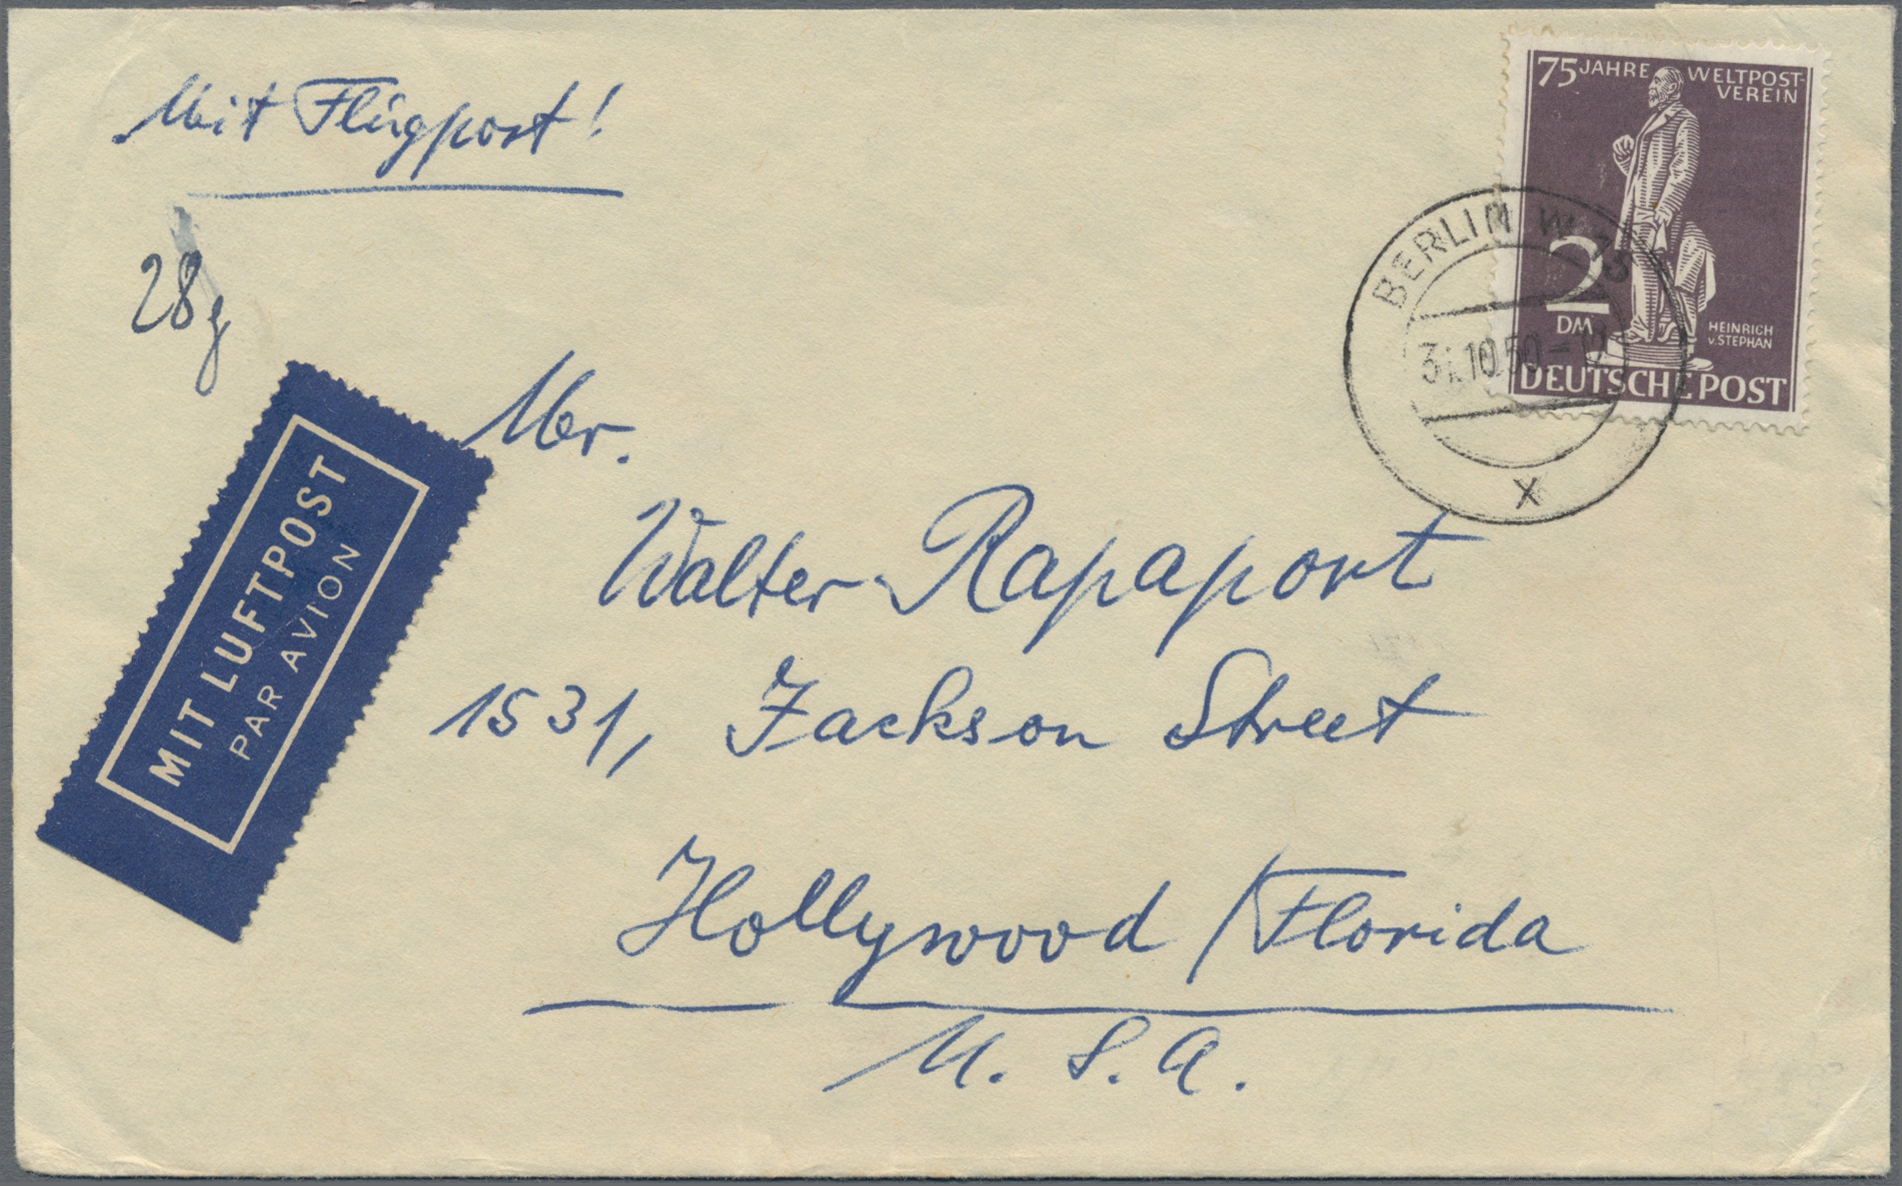 Mit Flugpost!
28g
MIT LUFTPOST
PAR AVION
75 JAHRE WELTPOST-
VEREIN
2
DM
HEINRICH
v. STEPHAN
DEUTSCHE POST
BERLIN W 15
10.50
x
Mr.
Walter Rapaport
1531, Jackson Street
Hollywood / Florida
U. S. A.